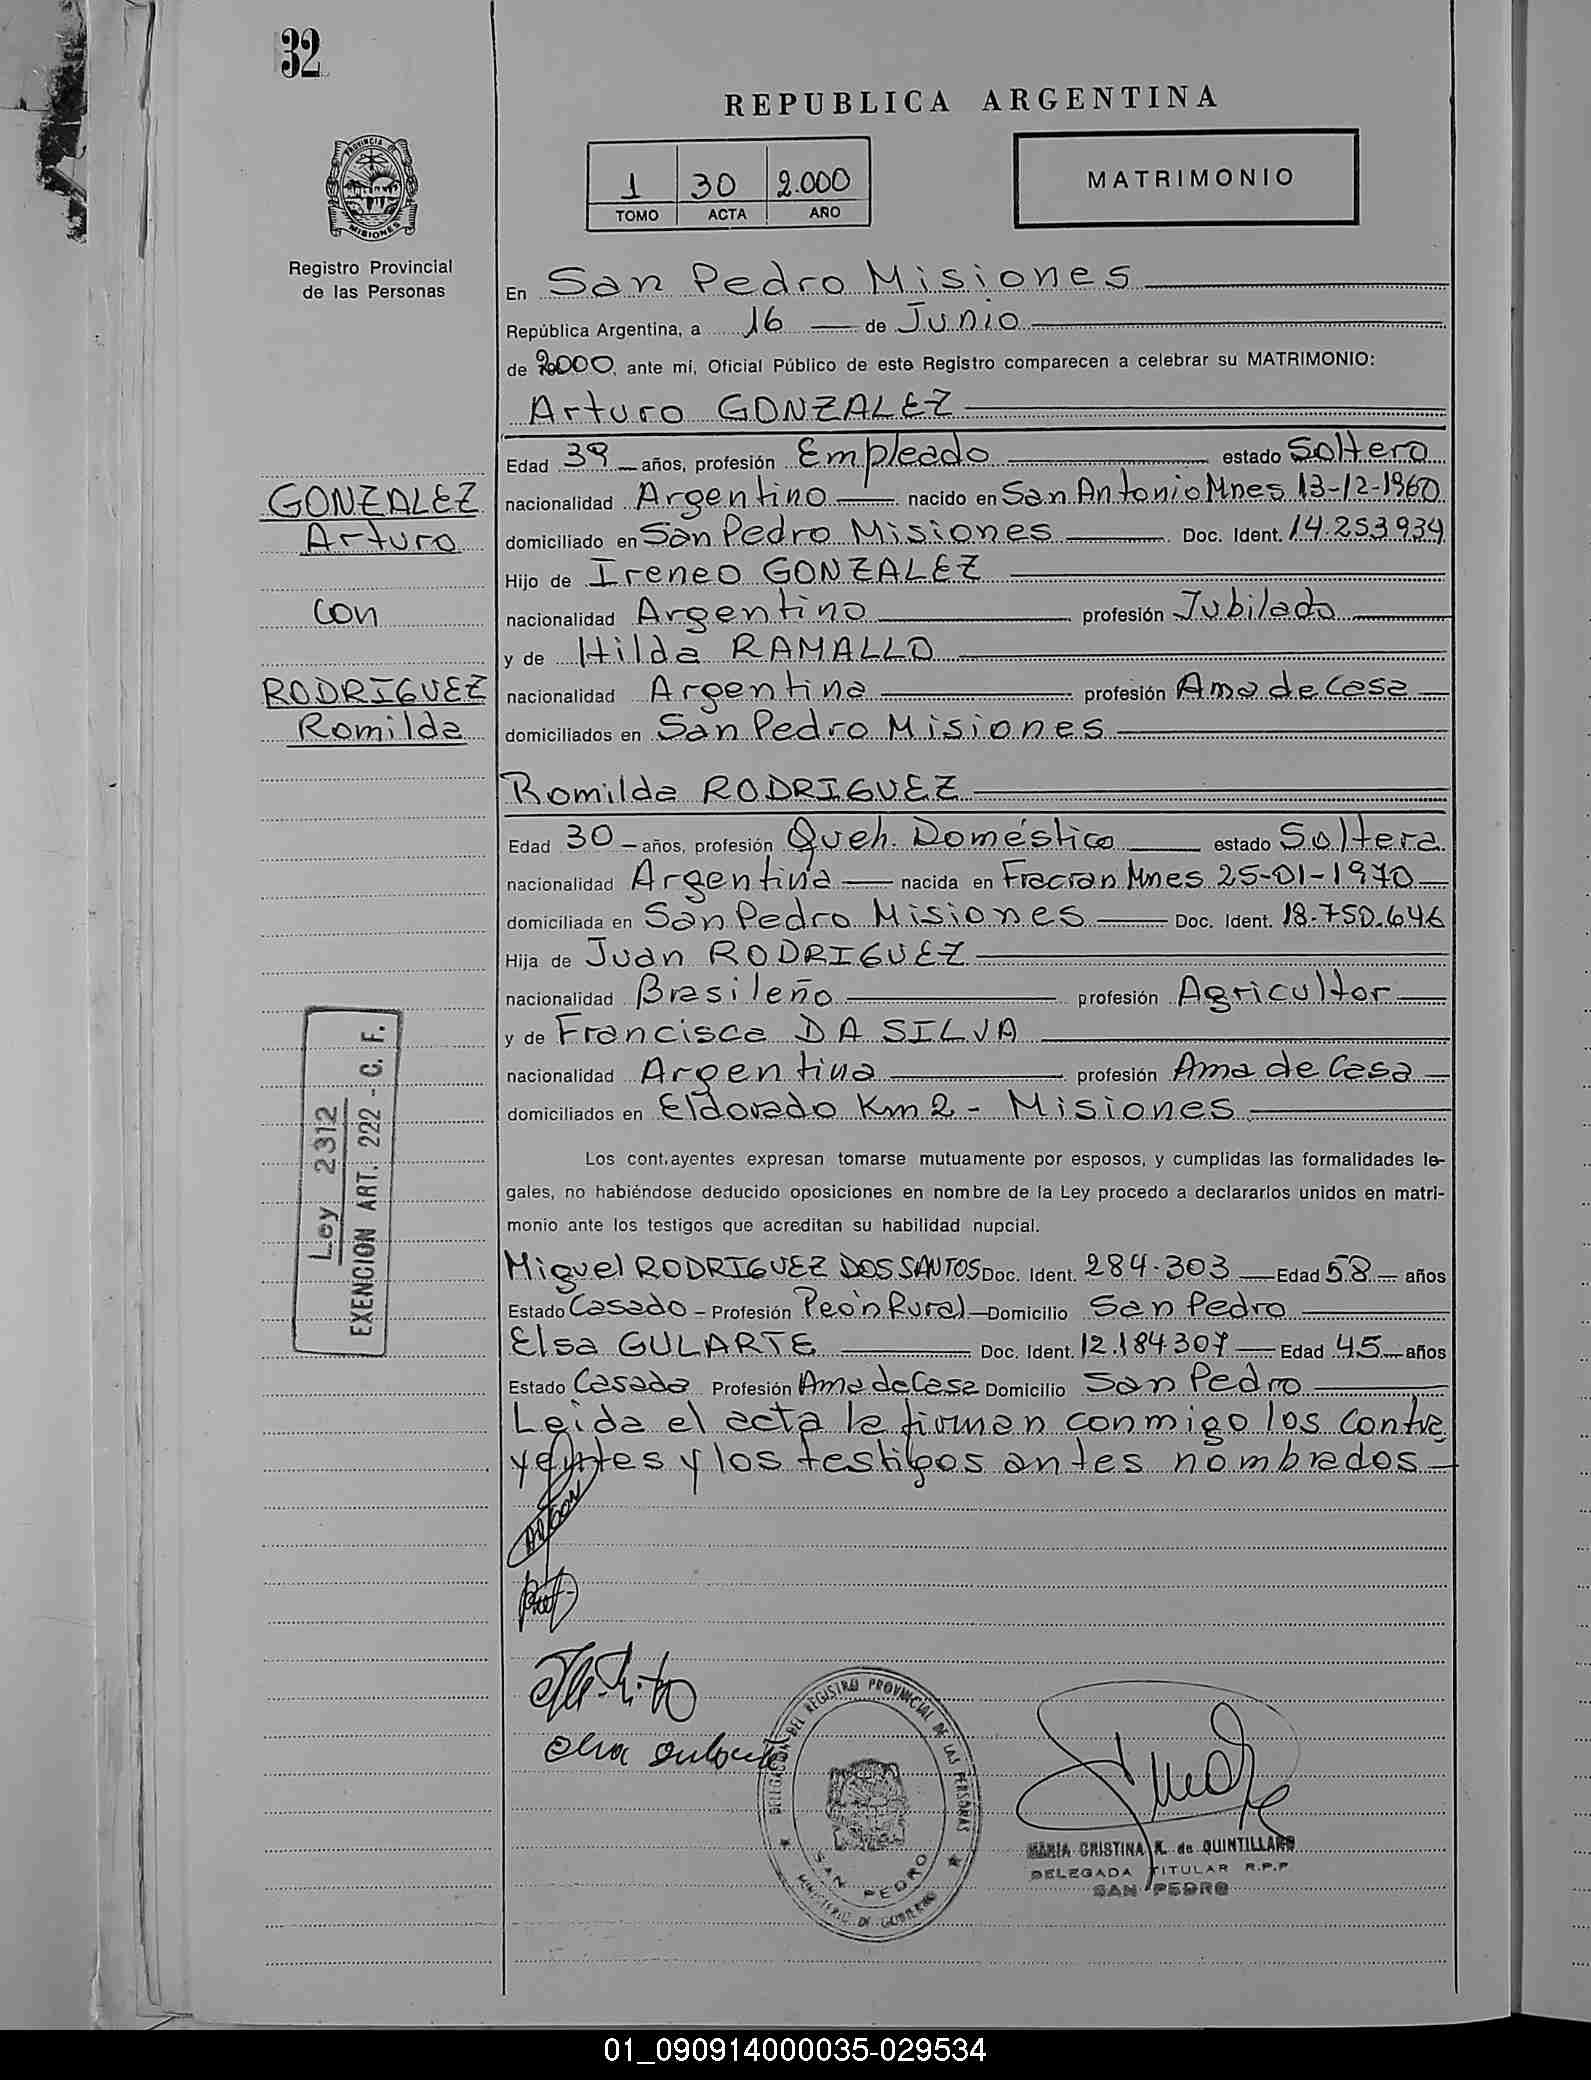 32
REPUBLICA ARGENTINA
1 30 2.000
TOMO ACTA AÑO
MATRIMONIO
PROVINCIA DE
MISIONES
Registro Provincial
de las Personas
En San Pedro Misiones
República Argentina, a 16 de Junio
de 2000, ante mí, Oficial Público de este Registro comparecen a celebrar su MATRIMONIO:
Arturo GONZALEZ
Edad 39 años, profesión Empleado estado Soltero
GONZALEZ
Arturo
con
RODRIGUEZ
Romilda
nacionalidad Argentino nacido en San Antonio Mnes 13-12-1960
domiciliado en San Pedro Misiones Doc. Ident. 14.253.934
Hijo de Ireneo GONZALEZ
nacionalidad Argentino profesión Jubilado
y de Hilda RAMALLO
nacionalidad Argentina profesión Ama de Casa
domiciliados en San Pedro Misiones
Romilda RODRIGUEZ
Edad 30 años, profesión Queh. Doméstico estado Soltera
nacionalidad Argentina nacida en Fracran Mnes 25-01-1970
domiciliada en San Pedro Misiones Doc. Ident. 18.750.646
Hija de Juan RODRIGUEZ
nacionalidad Brasileño profesión Agricultor
y de Francisca DA SILVA
nacionalidad Argentina profesión Ama de Casa
domiciliados en Eldorado Km 2 - Misiones
Ley 2312
EXENCION ART. 222 - C. F.
Los cont.ayentes expresan tomarse mutuamente por esposos, y cumplidas las formalidades le-
gales, no habiéndose deducido oposiciones en nombre de la Ley procedo a declararlos unidos en matri-
monio ante los testigos que acreditan su habilidad nupcial.
Miguel RODRIGUEZ DOS SANTOS Doc. Ident. 284.303 Edad 58 años
Estado Casado - Profesión Peón Rural Domicilio San Pedro
Elsa GULARTE Doc. Ident. 12.184.307 Edad 45 años
Estado Casada Profesión Ama de Casa Domicilio San Pedro
Leida el acta la firman conmigo los Contra
yentes y los testigos antes nombrados
DELEGACION DEL REGISTRO PROVINCIAL DE LAS PERSONAS
SAN PEDRO
MINISTERIO DE GOBIERNO
MARIA CRISTINA K. de QUINTILLAN
DELEGADA TITULAR R.P.P
SAN PEDRO
01_090914000035-029534